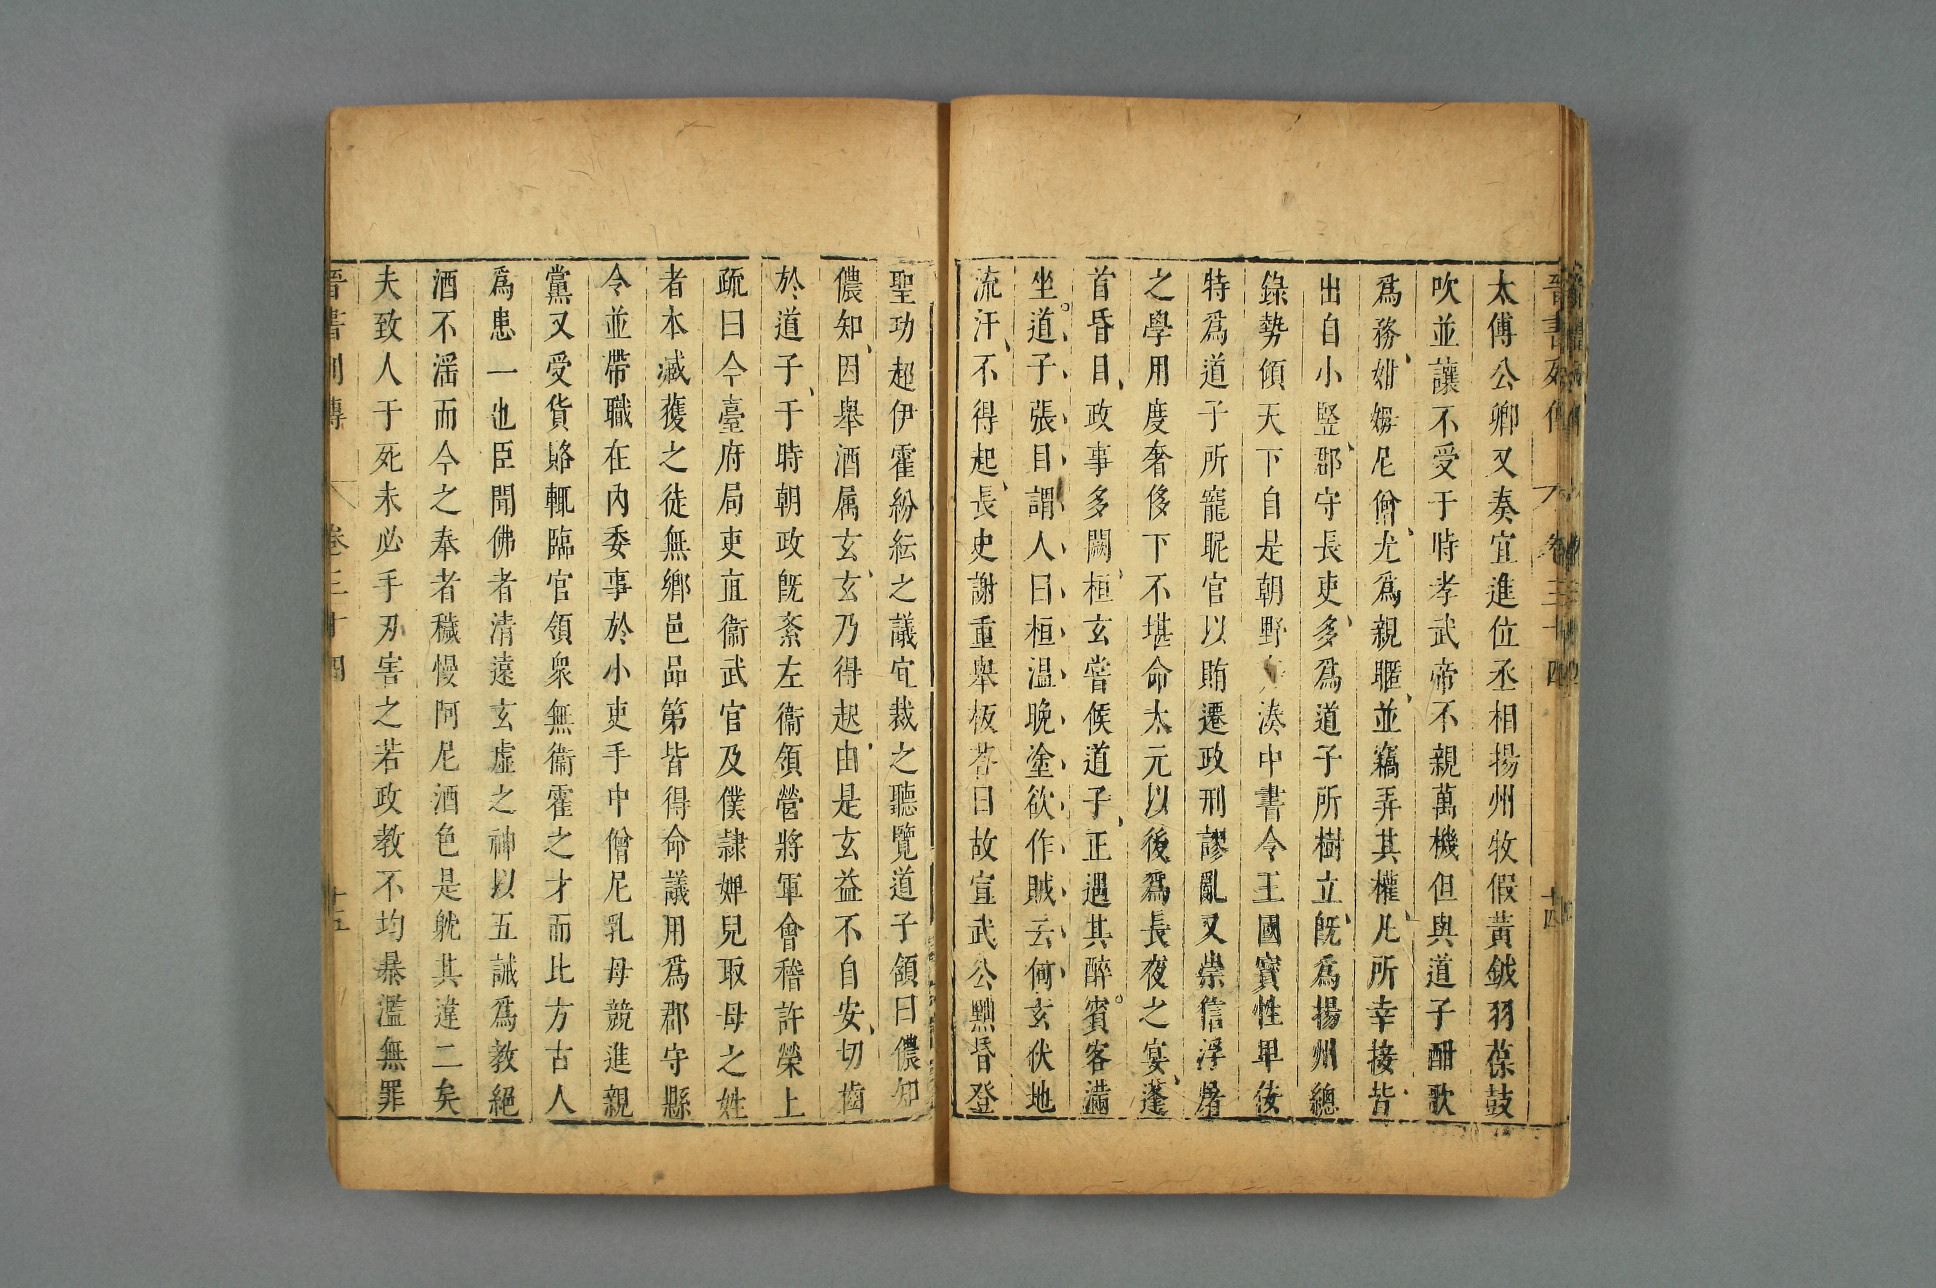 太傅公卿又奏宜進位丞相揚州牧假黃鉞羽葆鼓
吹並讓不受于時孝武帝不親萬機但與道子酣歌
爲務姏姆尼僧尤爲親暱並竊弄其權凡所幸接皆
出自小豎郡守長吏多爲道子所樹立旣爲揚州總
錄勢傾天下自是朝野湊中書令王國寶性卑佞
特爲道子所寵昵官以賄遷政刑謬亂又崇信浮屠
之學用度奢侈下不堪命太元以後爲長夜之宴蓬
首昏目政事多闕桓玄嘗候道子正遇其醉賓客滿
坐道子張目謂人曰桓溫晚塗欲作賊云何玄伏地
流汗不得起長史謝重舉板荅曰故宣武公黜昏登
聖功超伊霍紛紜之議宜裁之聽覽道子頷曰儂知
儂知因舉酒属玄玄乃得起由是玄益不自安切齒
於道子于時朝政旣紊左衞領營將軍會稽許榮上
疏曰今臺府局吏直衞武官及僕隷婢兒取母之姓
者本減蒦之徒無鄉邑品第皆得命議用爲郡守縣
令並帶職在內委事於小吏手中僧尼乳母競進親
黨又受貨賂輒臨官領衆無衞霍之才而比方古人
爲患一也臣聞佛者清遠玄虛之神以五誡爲教絕
酒不滛而今之奉者穢慢阿尼酒色是躭其違二矣
夫致人于死未必手刃害之若政教不均暴濫無罪
晉書列傳 卷三十四 十五